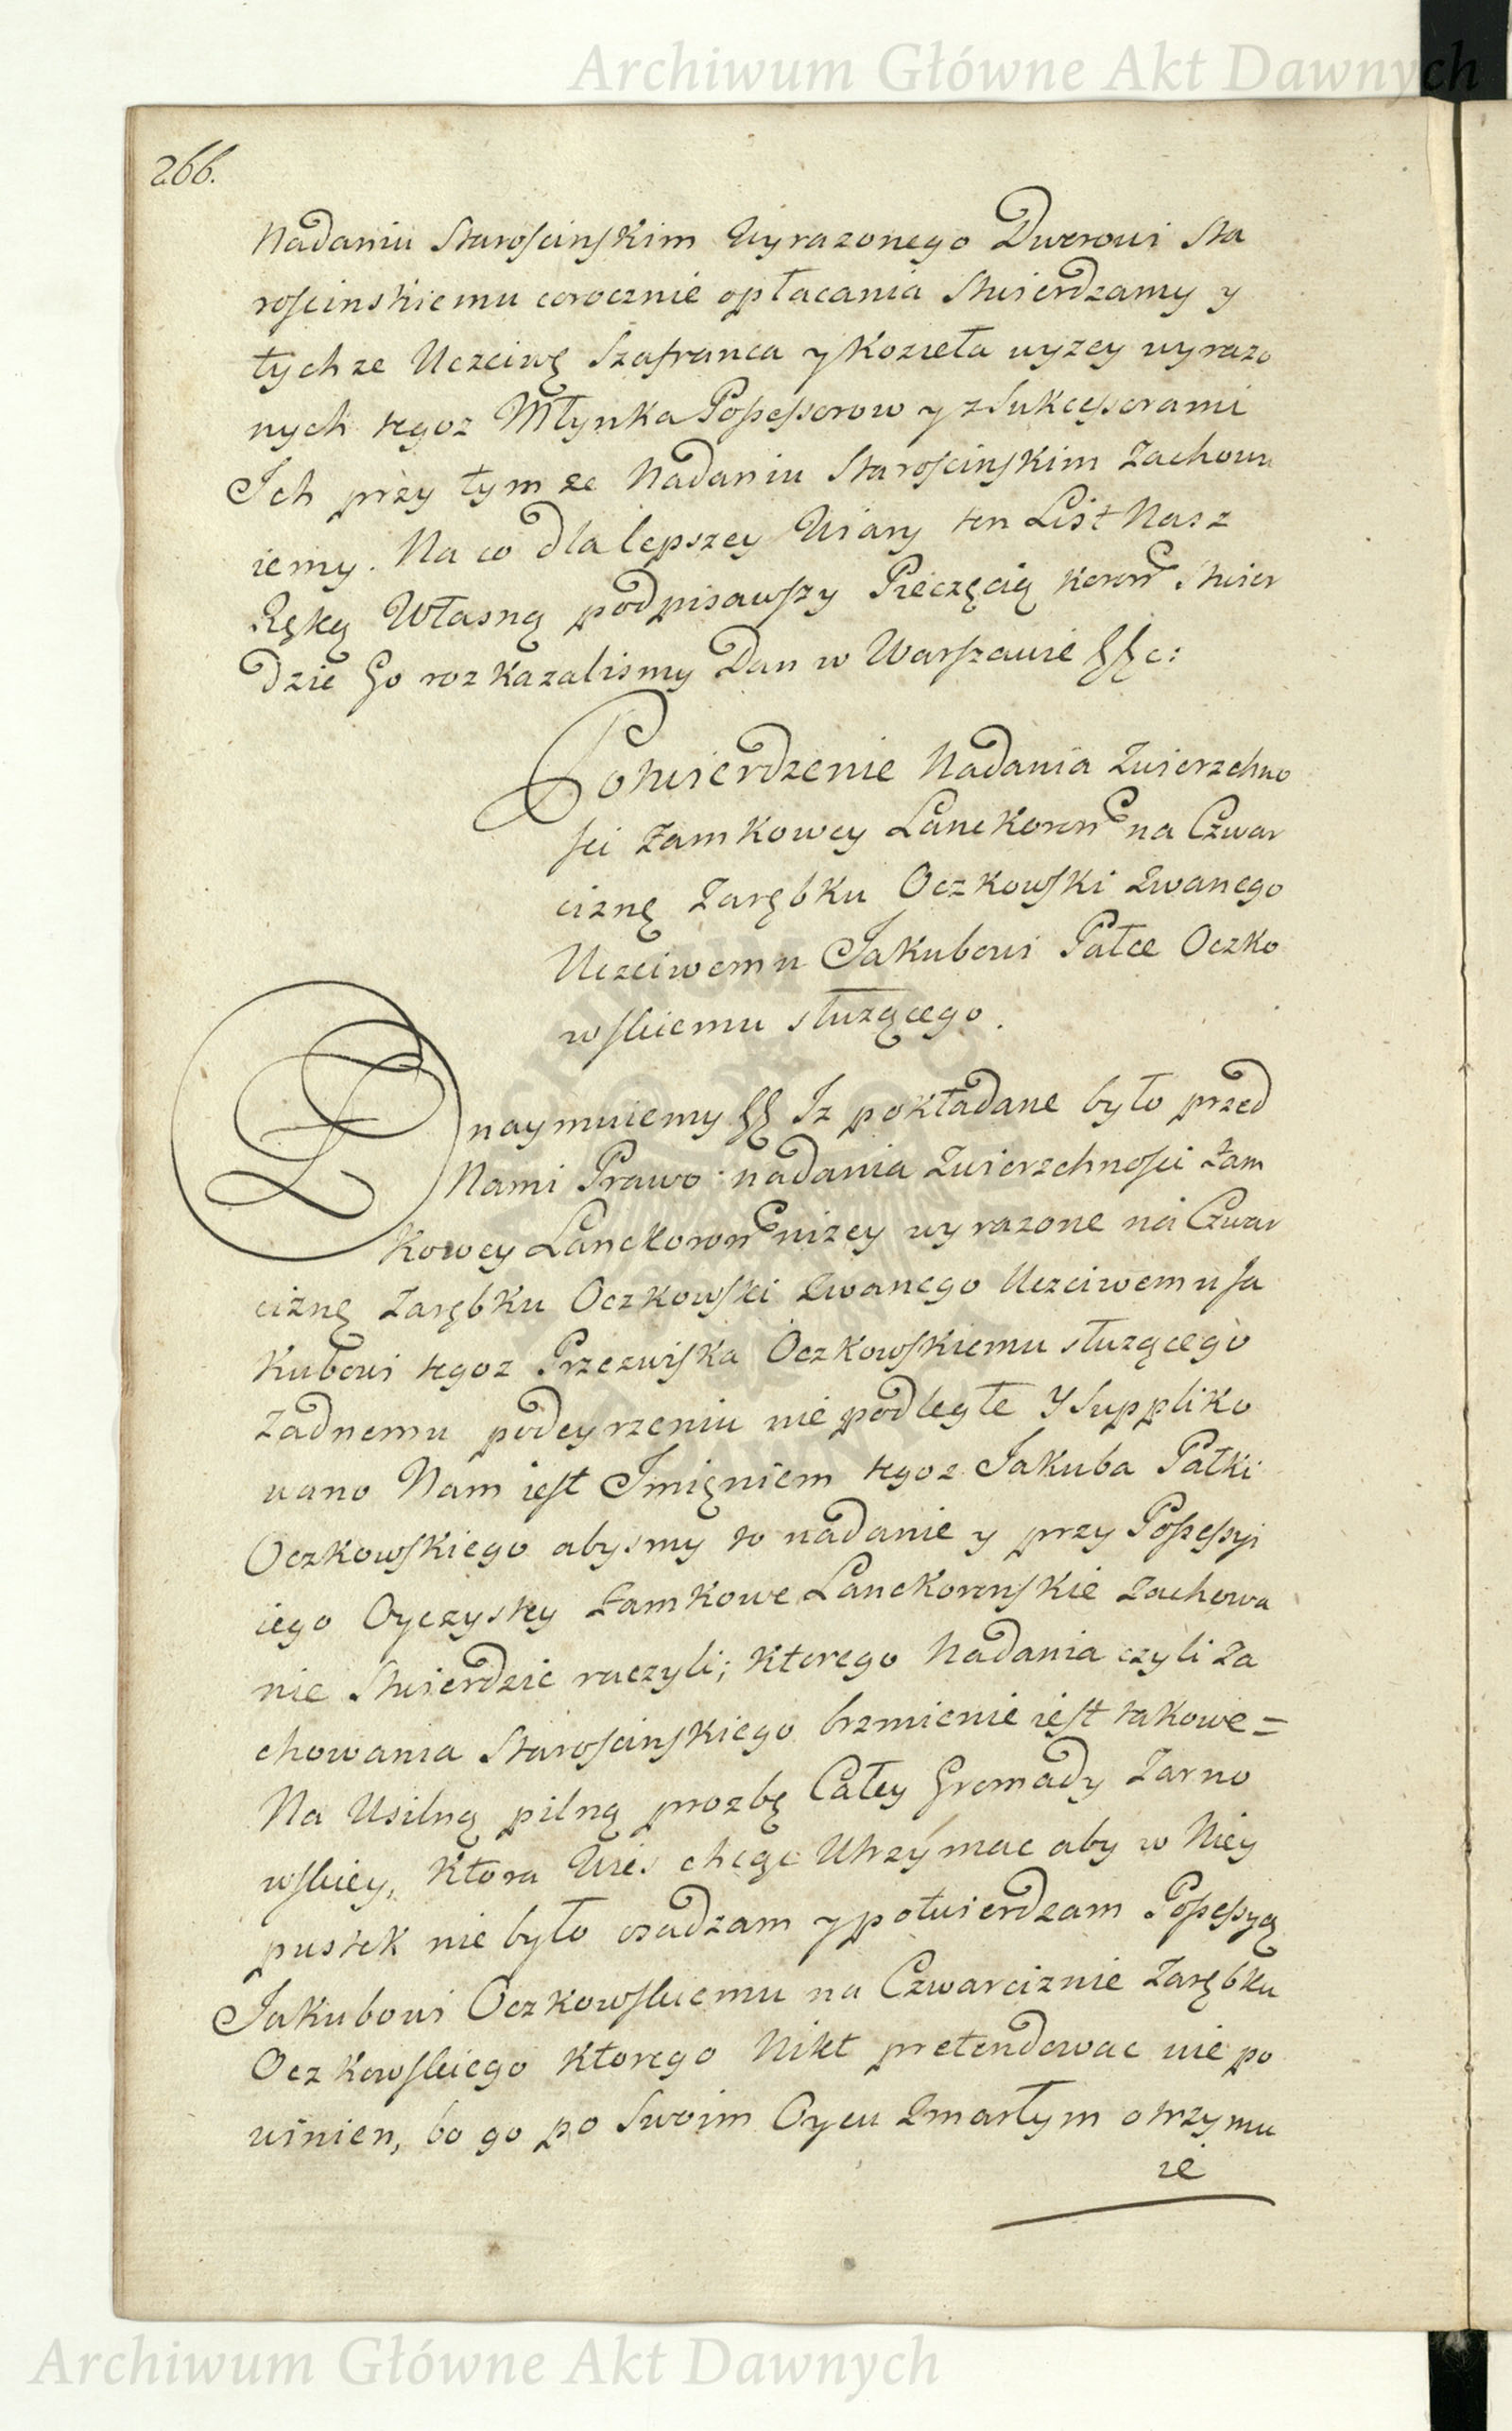 Archiwum Główne Akt Dawnych
266.
Nadaniu Starościnskim Wyrazonego Dworowi Sta
rościnskiemu corocznie opłacania Stwierdzamy y
tychze Uczciwę Szafranca y Kozieła wyzey wyrazo
nych tegoz Młynka Possessorow y z Sukcessorami
Ich przy tymze Nadaniu Starościnskim Zachowu
iemy. Na co dla lepszey Wiary ten List Nasz
Ręką Własną podpisawszy Pieczęcią koron stwier
dzić Go rozkazalismy Dan w Warszawie &&c:
Potwierdzenie Nadania Zwierzchno
ści Zamkowey Lanckoron na Czwar
ciznę Zarębku Oczkowski Zwanego
Uczciwemu Jakubowi Pałce Oczko
wskiemu służącego.
Oznaymuiemy && Iz pokładane było przed
Nami Prawo nadania Zwierzchności Zam
kowey Lanckoron nizey wyrazone na Czwar
ciznę Zarębku Oczkowski Zwanego Uczciwemu Ja
kubowi tegoz Przezwiska Oczkowskiemu służącego
Zadnemu podeyrzeniu nie podległe Y Suppliko
wano Nam iest Imięniem tegoz Jakuba Pałki
Oczkowskiego abysmy to nadanie y przy Possessyi
iego Oyczystey Zamkowe Lanckoronskie Zachowa
nie Stwierdzić raczyli; którego Nadania czyli Za
chowania Starościnskiego brzmienie iest takowe =
Na Usilną pilną prozbę Całey Gromady Zarno
wskiey, która Wieś chcąc Utrzymać aby w Niey
pustek nie było osadzam y potwierdzam Possessyą
Jakubowi Oczkowskiemu na Czwarciznie Zarębku
Oczkowskiego którego Nikt pretendować nie po
winien, bo go po Swoim Oycu Zmarłym otrzymu
ie
Archiwum Główne Akt Dawnych